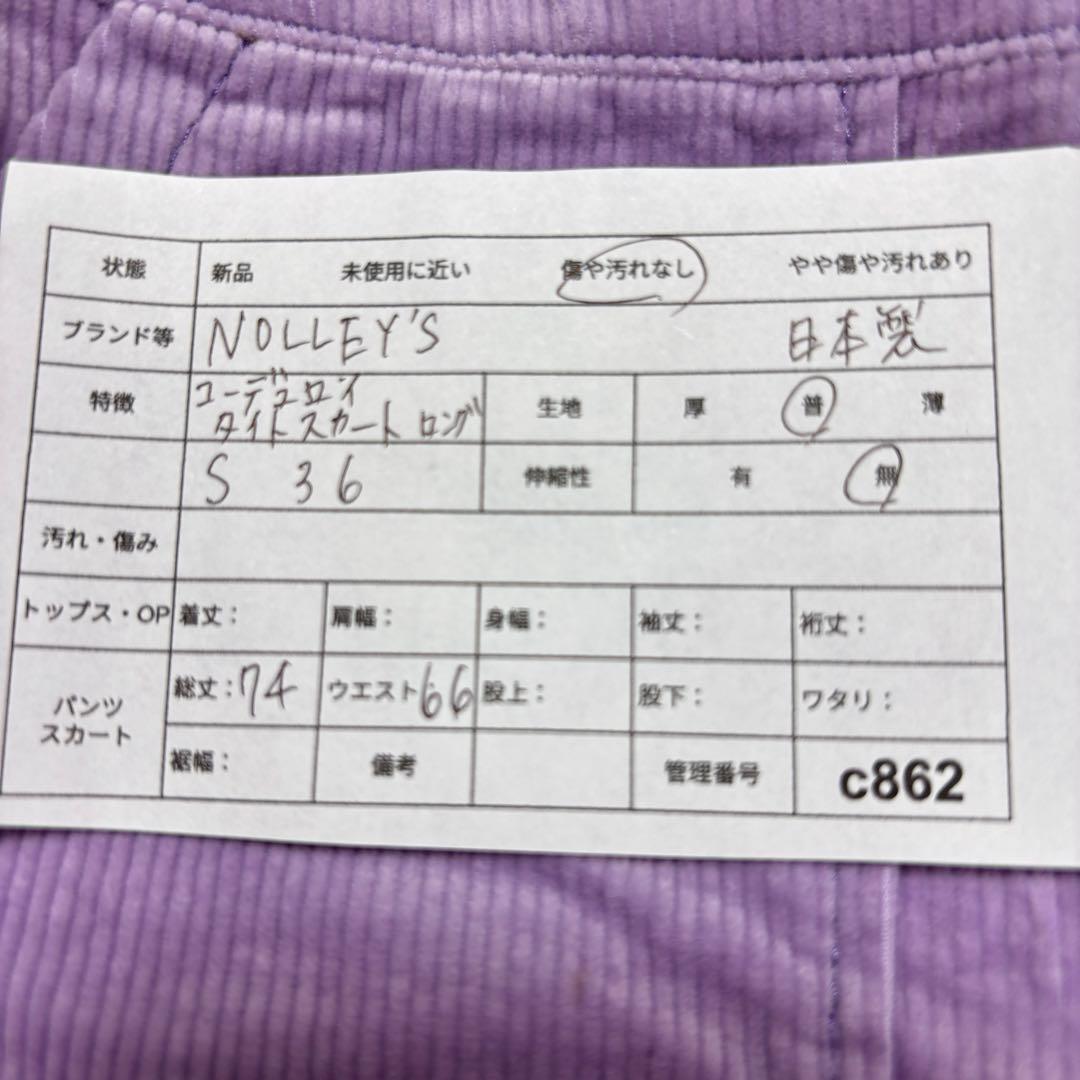 状態 新品 未使用に近い 傷や汚れなし やや傷や汚れあり
ブランド等 NOLLEY'S 日本製
特徴 コーデュロイ 生地 厚 普 薄
タイトスカート ロング
S 36 伸縮性 有 無
汚れ・傷み
トップス・OP 着丈: 肩幅: 身幅: 袖丈: 裄丈:
パンツ スカート 総丈:74 ウエスト66 股上: 股下: ワタリ:
裾幅: 備考 管理番号 c862